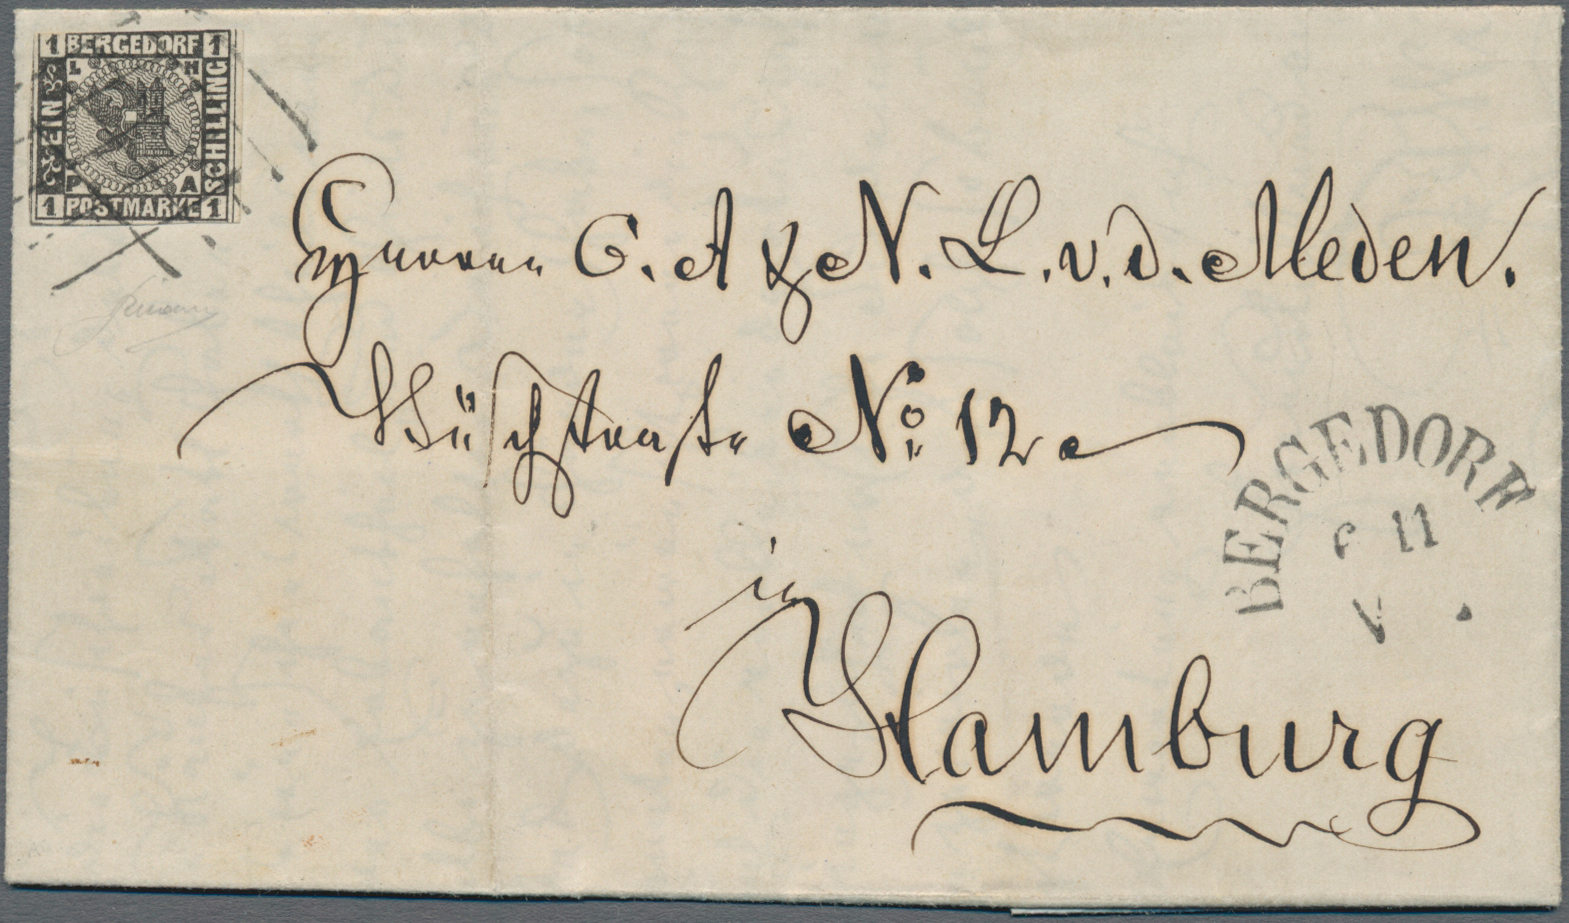 1 BERGEDORF 1
L H
EIN
SCHILLING
P A
1 POSTMARKE 1
Herren C. A & N. L. v. d. Meden.
Büschstraße No. 12
in
Hamburg
BERGEDORF
6 11
V